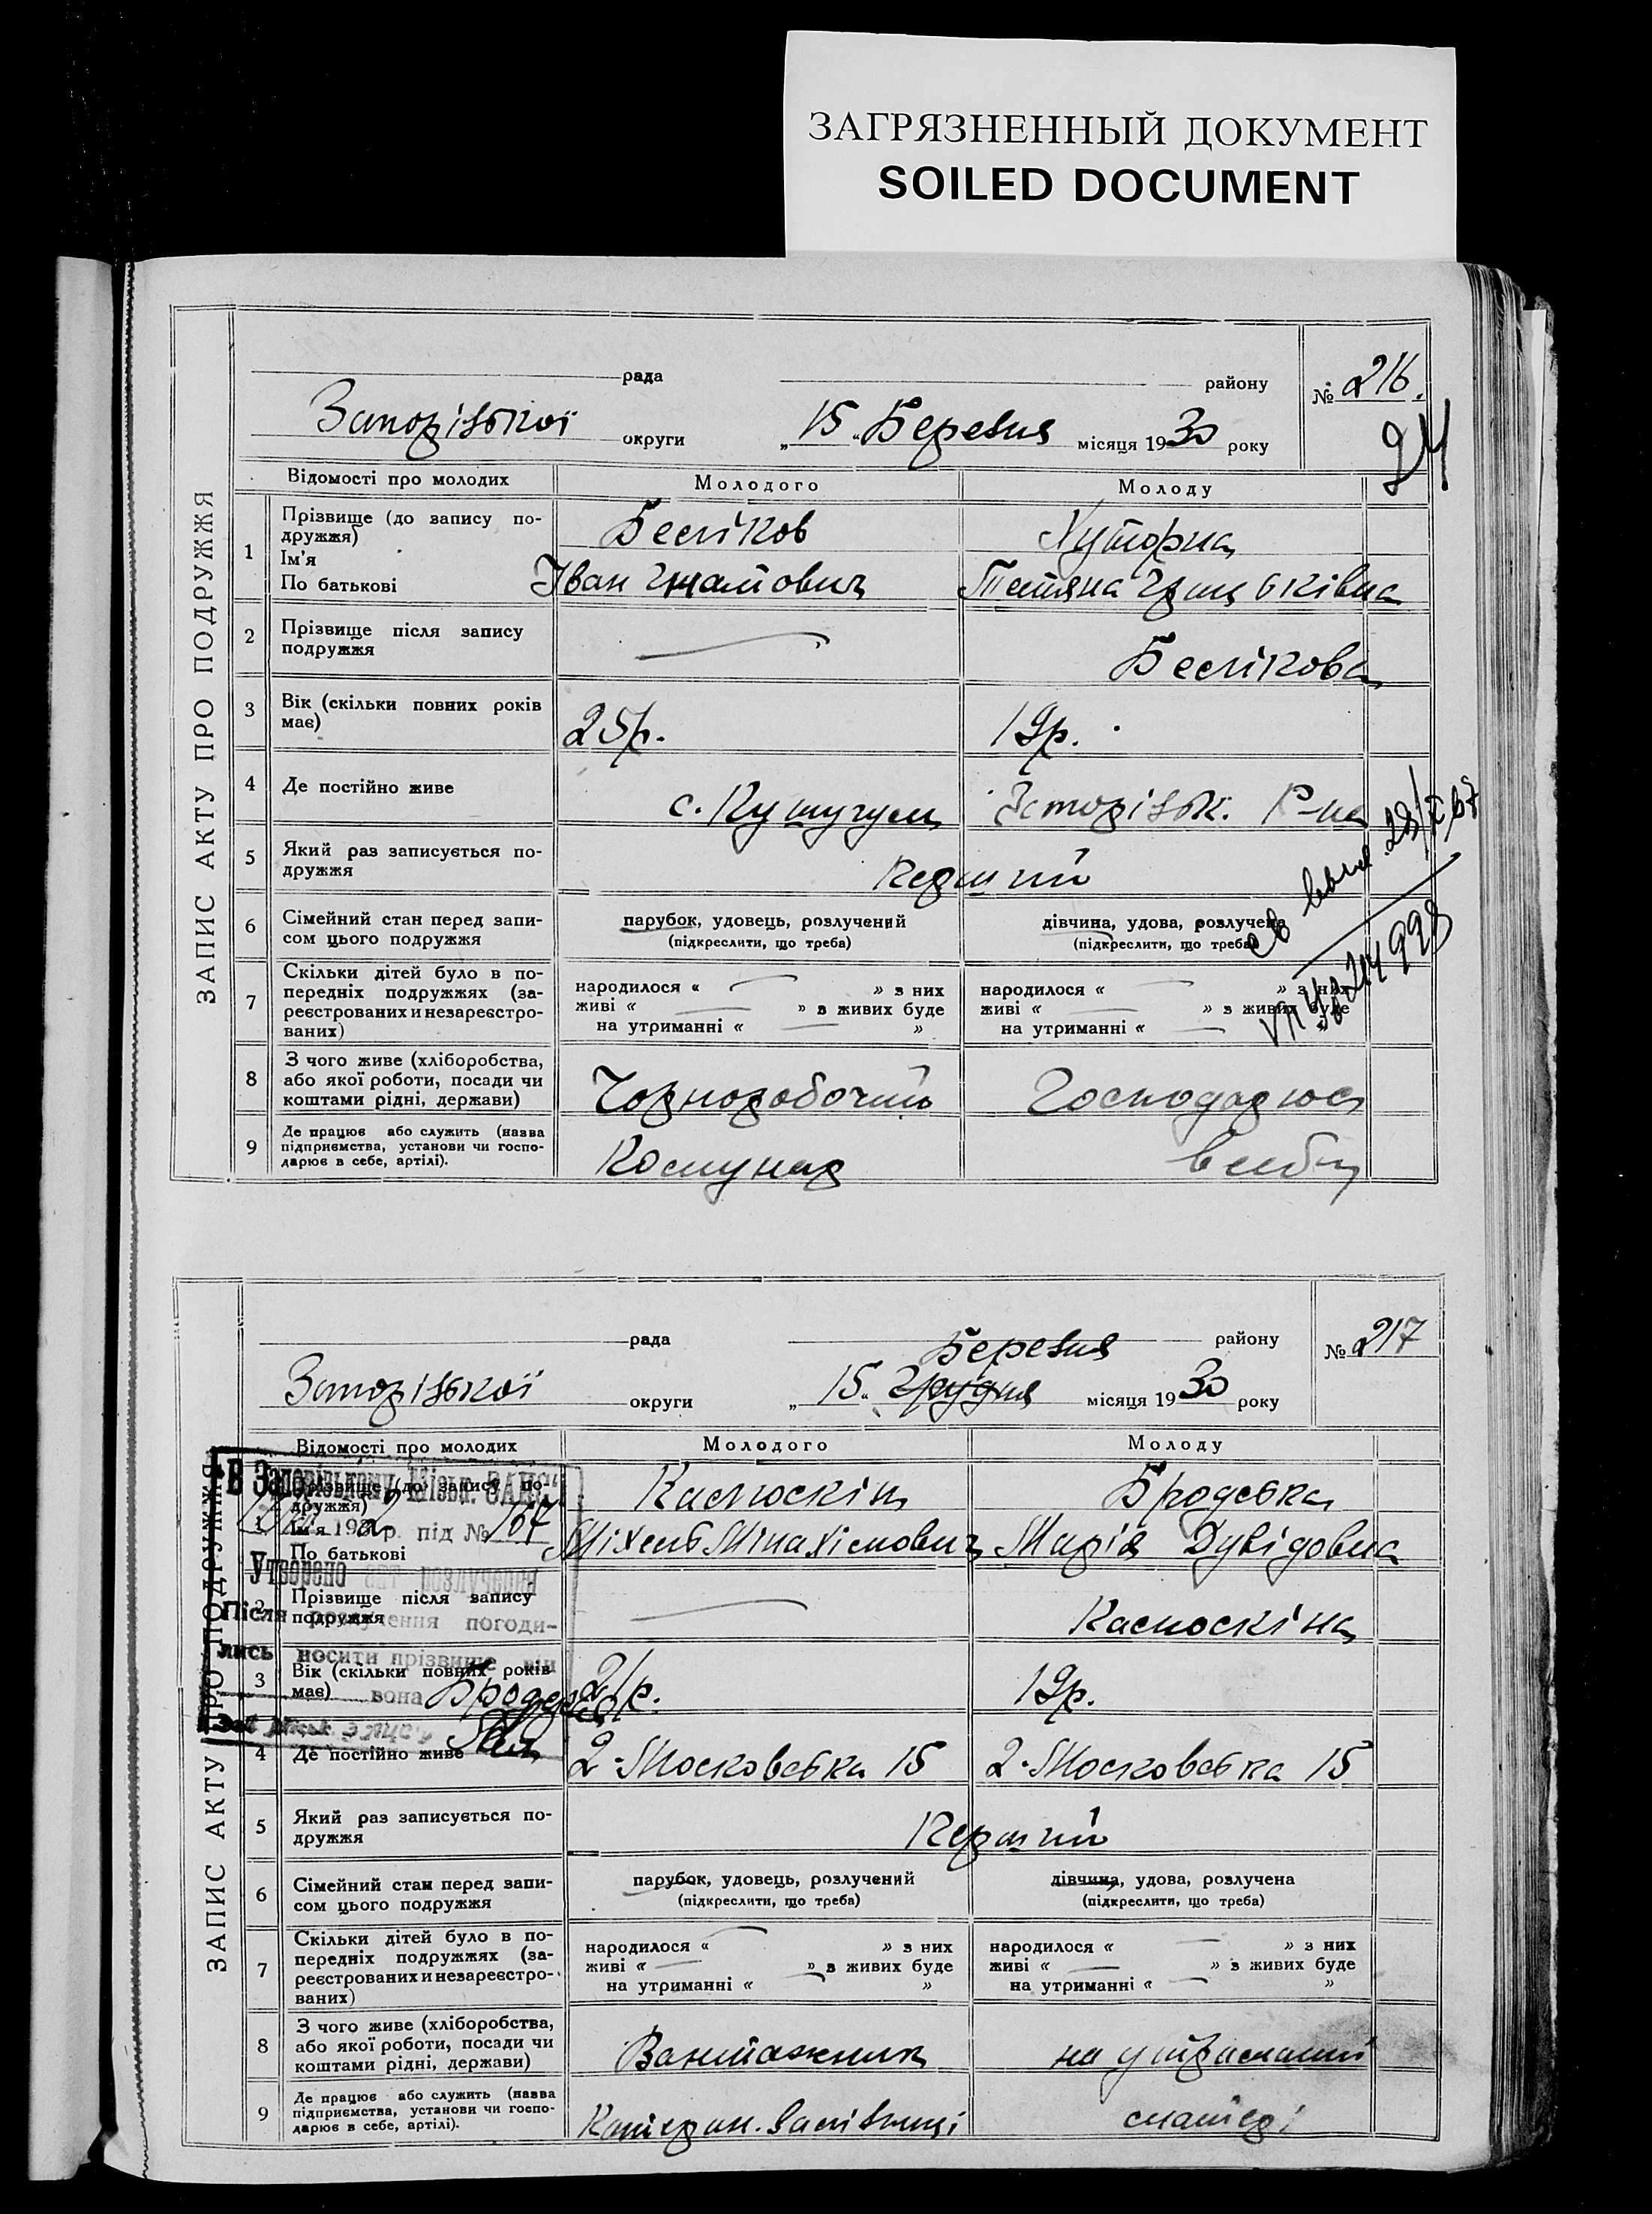 ЗАГРЯЗНЕННЫЙ ДОКУМЕНТ
SOILED DOCUMENT
ЗАПИС АКТУ ПРО ПОДРУЖЖЯ
рада району № 216.
Запорізької округи „15" Березня місяця 1930 року
24
Відомості про молодих Молодого Молоду
1 Прізвище (до запису по-
дружжя)
Ім'я
По батькові
Хуторна
Іван Гнатович Тетяна
2 Прізвище після запису
подружжя
3 Вік (скільки повних років
має)
25р. 19р.
4 Де постійно живе
с. Кушугум Запорізьк. Р-на
5 Який раз записується по-
дружжя
Перший
6 Сімейний стан перед запи-
сом цього подружжя
парубок, удовець, розлучений
(підкреслити, що треба)
дівчина, удова, розлучена
(підкреслити, що треба)
7 Скільки дітей було в по-
передніх подружжях (за-
реєстрованих и незареєстро-
ваних)
народилося « » з них
живі « » з живих буде
на утриманні « »
народилося « » з них
живі « » з живих буде
на утриманні « »
8 З чого живе (хліборобства,
або якої роботи, посади чи
коштами рідні, держави)
Чорноробочий Господарює
9 Де працює або служить (назва
підприємства, установи чи госпо-
дарює в себе, артілі).
Комунар в себе
ЗАПИС АКТУ ПРО ПОДРУЖЖЯ
рада району № 217
Березня
Запорізької округи „15" Грудня місяця 1930 року
Відомості про молодих Молодого Молоду
Прізвище (до запису по-
дружжя)
Ім'я
По батькові
Бродська
Міхель Мінахімович Марія Давідовна
В Запорізькому Міськ. ЗАГСі
193 р. під № 167
Утворено акт розлучення
Після розлучення погоди-
лись носити прізвище він
вона
2 Прізвище після запису
подружжя
3 Вік (скільки повних років
має)
21р. 19р.
4 Де постійно живе
2-Московська 15 2-Московська 15
5 Який раз записується по-
дружжя
Перший
6 Сімейний стан перед запи-
сом цього подружжя
парубок, удовець, розлучений
(підкреслити, що треба)
дівчина, удова, розлучена
(підкреслити, що треба)
7 Скільки дітей було в по-
передніх подружжях (за-
реєстрованих и незареєстро-
ваних)
народилося « » з них
живі « » з живих буде
на утриманні « »
народилося « » з них
живі « » з живих буде
на утриманні « »
8 З чого живе (хліборобства,
або якої роботи, посади чи
коштами рідні, держави)
Вантажник на утриманні
9 Де працює або служить (назва
підприємства, установи чи госпо-
дарює в себе, артілі).
матері